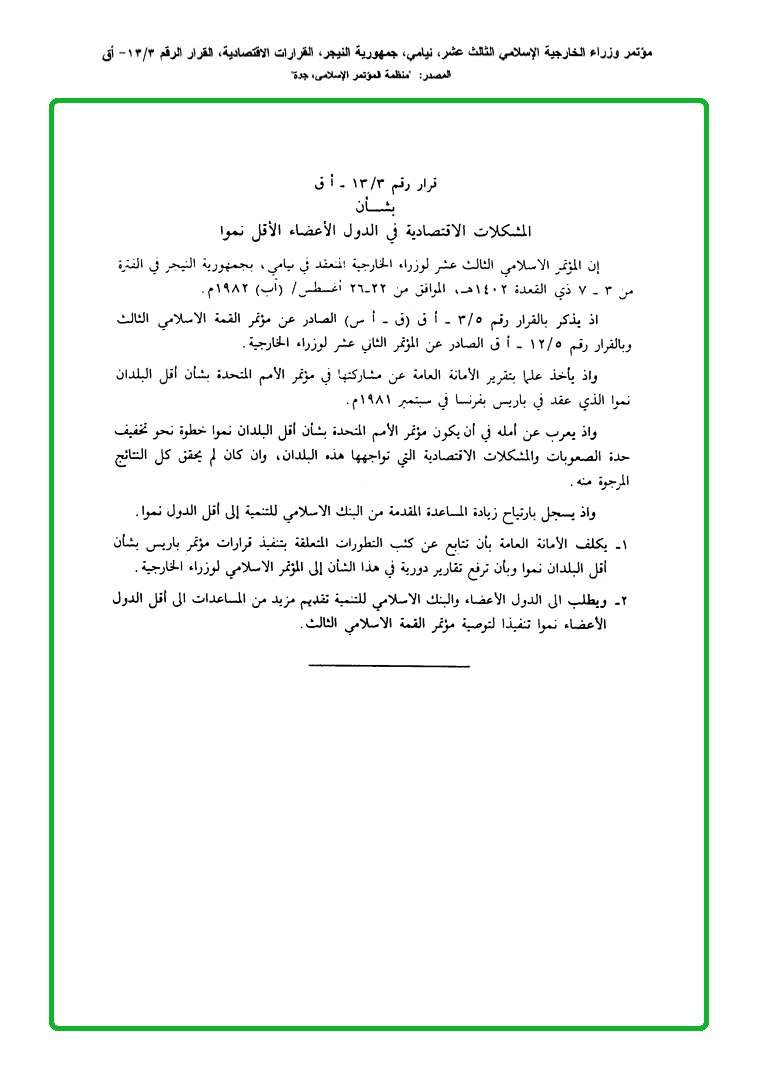 مؤتمر وزراء الخارجية الإسلامي الثالث عشر، نيامي، جمهورية النيجر، القرارات الاقتصادية، القرار الرقم ١٣/٣- أق
المصدر: "منظمة المؤتمر الإسلامي، جدة"
قرار رقم ١٣/٣ ـ أ ق
بشــأن
المشكلات الاقتصادية في الدول الأعضاء الأقل نموا
إن المؤتمر الاسلامي الثالث عشر لوزراء الخارجية المنعقد في نيامي، بجمهورية النيجر في الفترة
من ٣ ـ ٧ ذي القعدة ١٤٠٢هـ، الموافق من ٢٢ـ٢٦ أغسطس/ (أب) ١٩٨٢م.
اذ يذكر بالقرار رقم ٣/٥ ـ أ ق (ق ـ أ س) الصادر عن مؤتمر القمة الاسلامي الثالث
وبالقرار رقم ١٢/٥ ـ أ ق الصادر عن المؤتمر الثاني عشر لوزراء الخارجية.
واذ يأخذ علما بتقرير الأمانة العامة عن مشاركتها في مؤتمر الأمم المتحدة بشأن أقل البلدان
نموا الذي عقد في باريس بفرنسا في سبتمبر ١٩٨١م.
واذ يعرب عن أمله في أن يكون مؤتمر الأمم المتحدة بشأن أقل البلدان نموا خطوة نحو تخفيف
حدة الصعوبات والمشكلات الاقتصادية التي تواجهها هذه البلدان، وان كان لم يحقق كل النتائج
المرجوة منه.
واذ يسجل بارتياح زيادة المساعدة المقدمة من البنك الاسلامي للتنمية إلى أقل الدول نموا.
١ـ يكلف الأمانة العامة بأن تتابع عن كثب التطورات المتعلقة بتنفيذ قرارات مؤتمر باريس بشأن
أقل البلدان نموا وبأن ترفع تقارير دورية في هذا الشأن إلى المؤتمر الاسلامي لوزراء الخارجية.
٢ـ ويطلب الى الدول الأعضاء والبنك الاسلامي للتنمية تقديم مزيد من المساعدات الى أقل الدول
الأعضاء نموا تنفيذا لتوصية مؤتمر القمة الاسلامي الثالث.